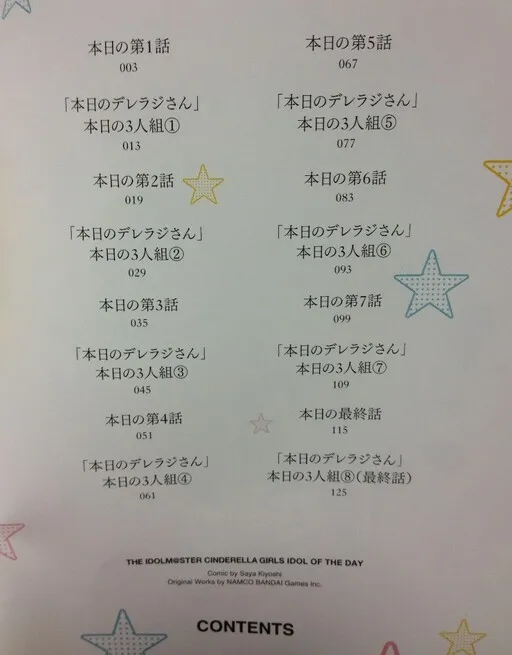 本日の第1話
003
「本日のデレラジさん」
本日の3人組①
013
本日の第2話
019
「本日のデレラジさん」
本日の3人組②
029
本日の第3話
035
「本日のデレラジさん」
本日の3人組③
045
本日の第4話
051
「本日のデレラジさん」
本日の3人組④
061
本日の第5話
067
「本日のデレラジさん」
本日の3人組⑤
077
本日の第6話
083
「本日のデレラジさん」
本日の3人組⑥
093
本日の第7話
099
「本日のデレラジさん」
本日の3人組⑦
109
本日の最終話
115
「本日のデレラジさん」
本日の3人組⑧(最終話)
125
THE IDOLM@STER CINDERELLA GIRLS IDOL OF THE DAY
Comic by Saya Kiyoshi
Original Works by NAMCO BANDAI Games Inc.
CONTENTS